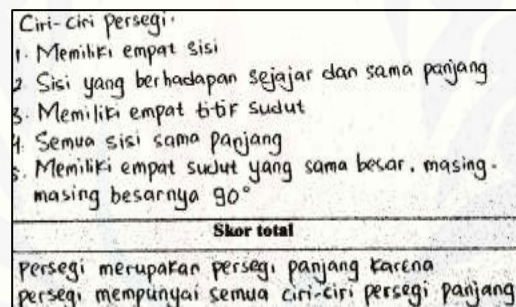 Ciri-ciri persegi.
1. Memiliki empat sisi
2 Sisi yang berhadapan sejajar dan sama panjang
3. Memiliki empat titik sudut
4. Semua sisi sama panjang
5. Memiliki empat sudut yang sama besar, masing-
masing besarnya 90°
Skor total
persegi merupakan persegi panjang karena
persegi mempunyai semua ciri-ciri persegi panjang